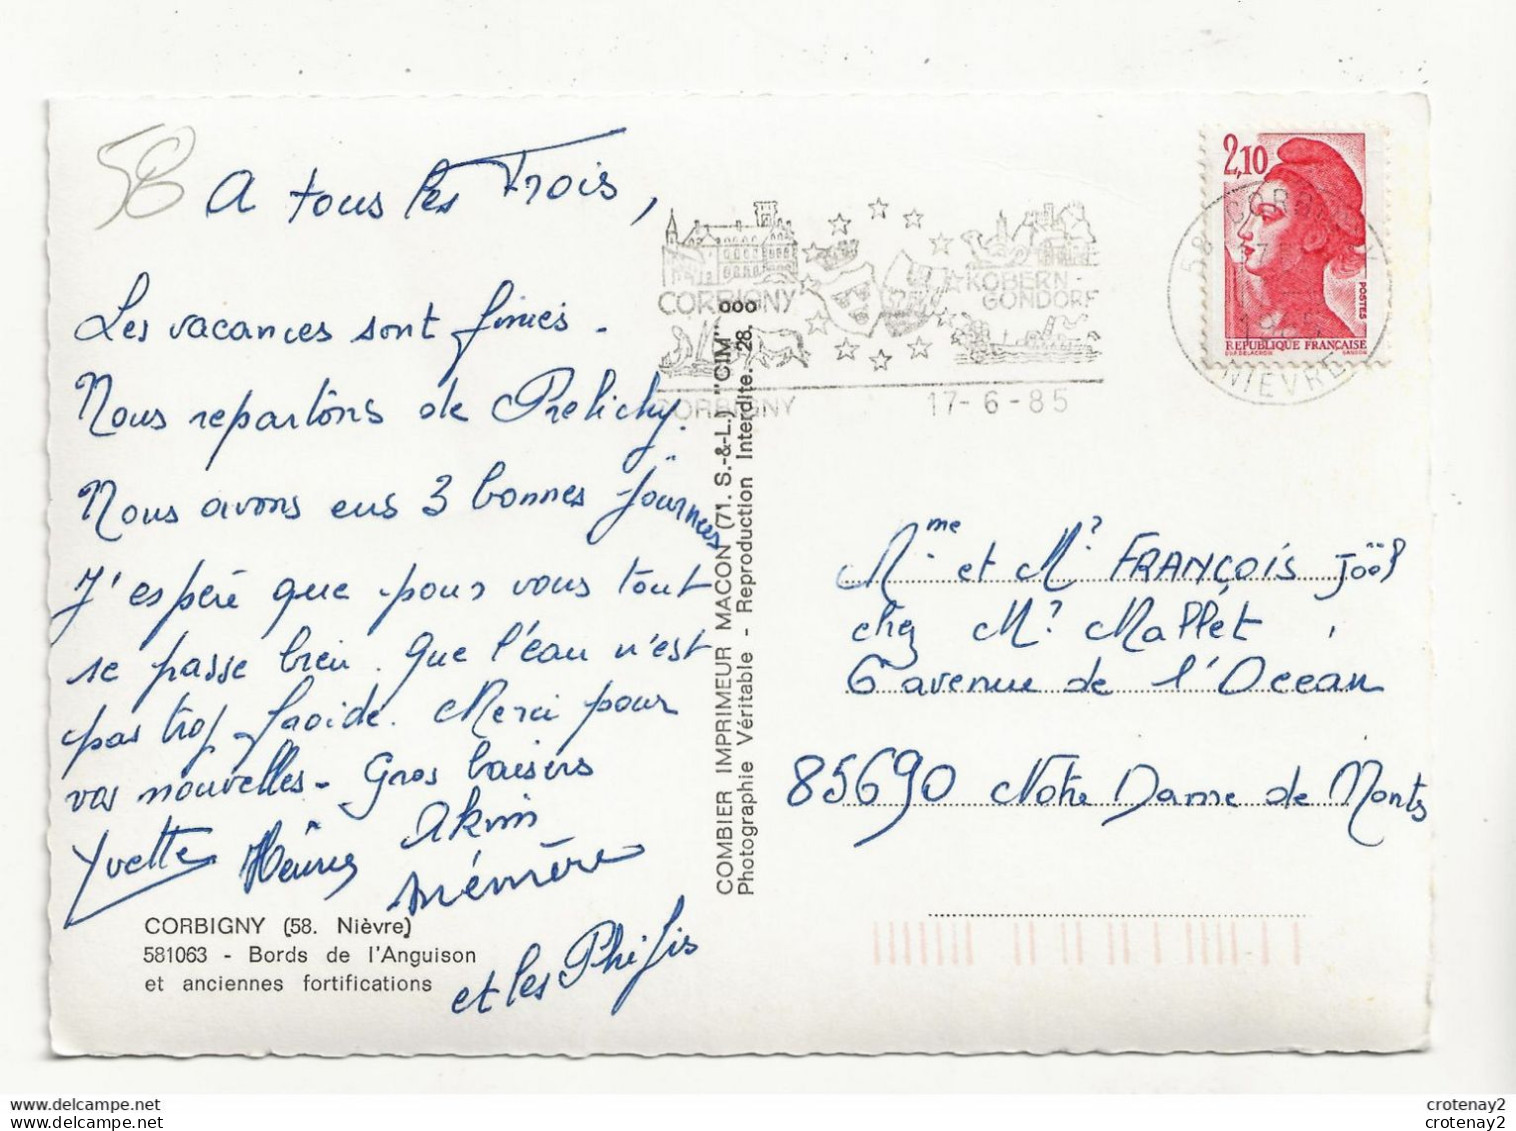 58
A tous les Trois,
Les vacances sont finies -
Nous repartons de Prelichy.
Nous avons eus 3 bonnes journées
J'espère que pour vous tout
se passe bien. Que l'eau n'est
pas trop froide. Merci pour
vos nouvelles - Gros baisers
Yvette Akim
mémère
et les Phifis
CORBIGNY (58. Nièvre)
581063 - Bords de l'Anguison
et anciennes fortifications
COMBIER IMPRIMEUR MACON (71. S.-&-L.) "CIM"
Photographie Véritable - Reproduction Interdite. 28. 000
CORBIGNY
KOBERN-
GONDORF
CORBIGNY 17-6-85
2,10
POSTES
REPUBLIQUE FRANÇAISE
D'AP. DELACROIX GANDON
58 CORBIGNY
1985
NIEVRE
Mme et Mr FRANÇOIS Joël
chez Mr Mallet
6 avenue de l'Ocean
85690 Notre Dame de Monts
crotenay2
crotenay2
crotenay2
crotenay2